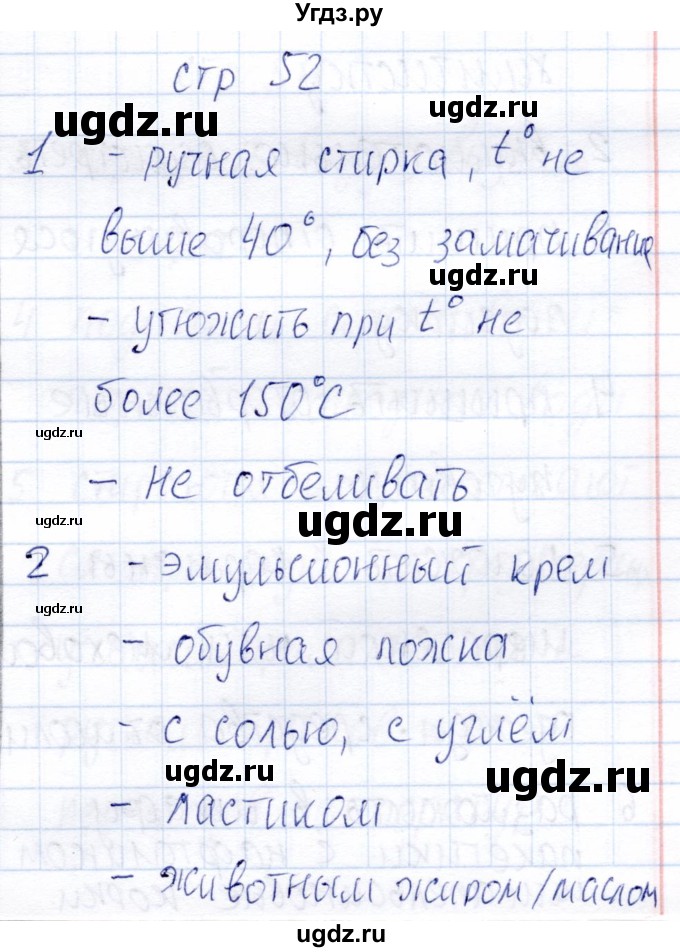 Угдз.ру
стр 52
ugdz.ru
ugdz.ru
1 - ручная стирка, t° не
выше 40°, без замачивание
ugdz.ru
- утюжить при t° не
более 150°С
ugdz.ru
- не отбеливать
ugdz.ru
2 - эмульсионный крем
ugdz.ru
- обувная ложка
- с солью, с углём
ugdz.ru
ugdz.ru
- ластиком
- животным жиром/маслом
ugdz.ru